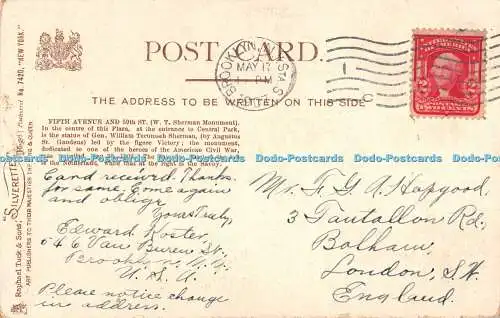 POST CARD.
BROOKLYN, N.Y.
MAY 17
PM
STA S
1
C
THE ADDRESS TO BE WRITTEN ON THIS SIDE
FIFTH AVENUE AND 59th ST. (W. T. Sherman Monument).
In the centre of this Plaza, at the entrance to Central Park,
is the statue of Gen. William Tecumseh Sherman, (by Augustus
St. Gaudens) led by the figure Victory; the monument
dedicated to one of the heroes of the American Civil War,
the Netherland, while that at the right is the Savoy.
Card received. Thanks
for same. Come again
and oblige
Yours truly,
Edward Koster
546 Van Buren St.
Brooklyn N.Y.
U.S.A.
Please notice change
in address.
Mr. F. G. A. Hapgood
3 Tantallon Rd.,
Balham,
London, S.W.
England.
Raphael Tuck & Sons' "SILVERETTE"
Postcard No. 7420, "NEW YORK."
ART PUBLISHERS TO THEIR MAJESTIES THE KING & QUEEN
Dodo-Postcards Dodo-Postcards Dodo-Postcards Dodo-Postcards Dodo-Postcards Dodo-Postcards